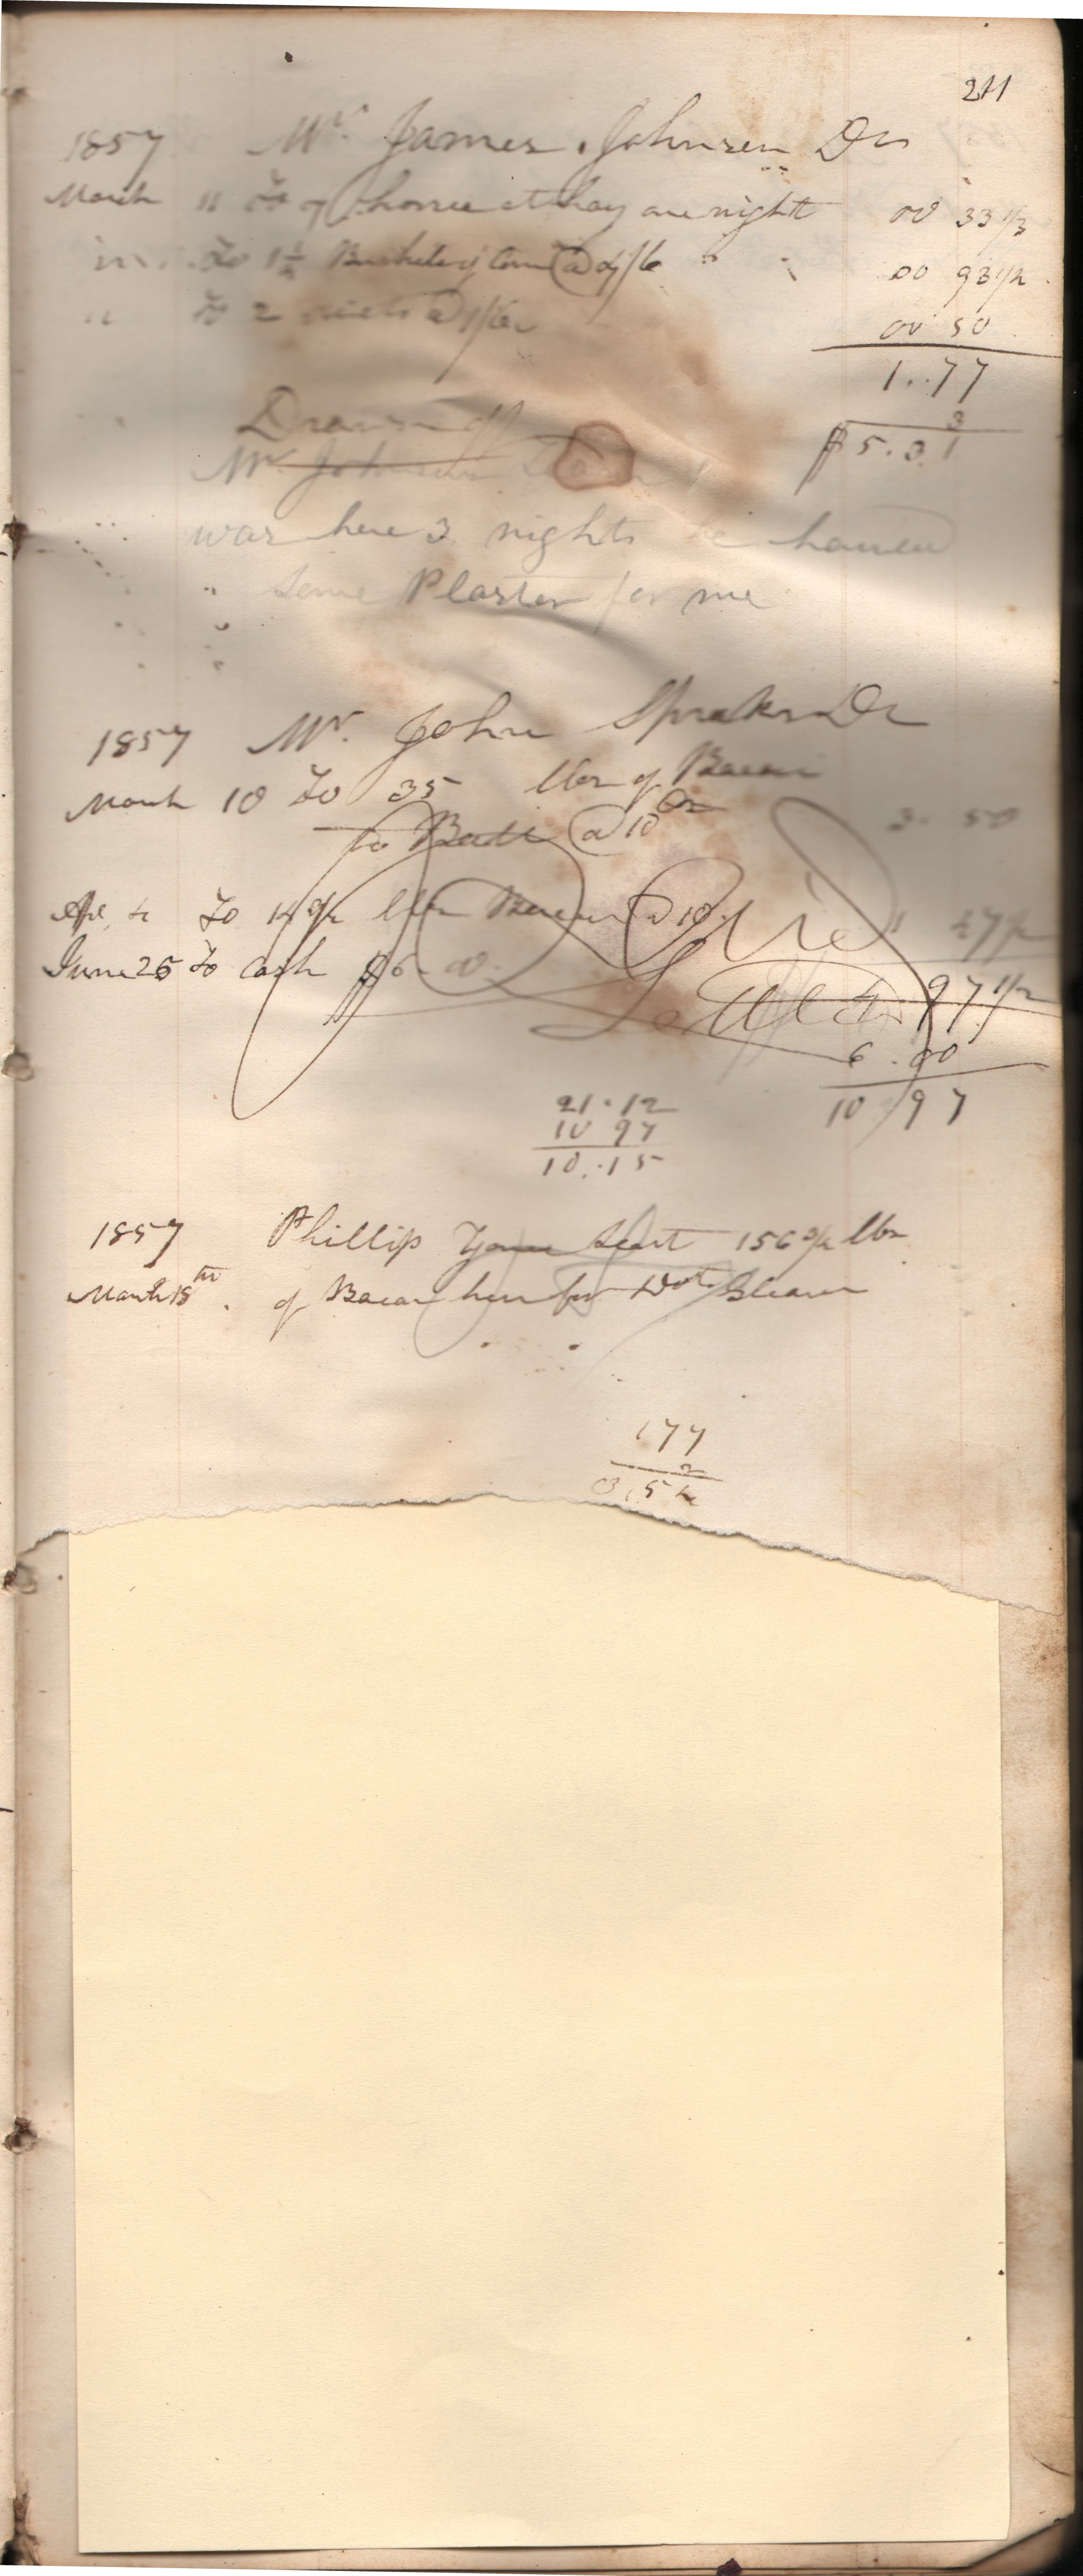 211
1857 Mr. James Johnson Dr
March 11 To 7 horses at hay one night 00 33 1/3
" To 1 1/4 Bushels of Corn @ 4/6 00 93 1/2
" To 2 diets @ 1/6 00 50
1..77
3
$5.31
Drawn off
Mr Johnson
was here 3 nights he hauled
some Plaster for me
1857 Mr. John Spraker Dr
March 10 To 35 lbs of Bacon
to Butt @ 10 cts 3. 50
Apl 4 To 14 3/4 lbs Bacon @ 10 1 47 1/2
June 25 To Cash $6.00
Settled 4. 97 1/2
6.00
10 97
21.12
10 97
10.15
1857 Phillip sent 156 3/4 lbs
March 18th of Bacon here for
177
2
3,54